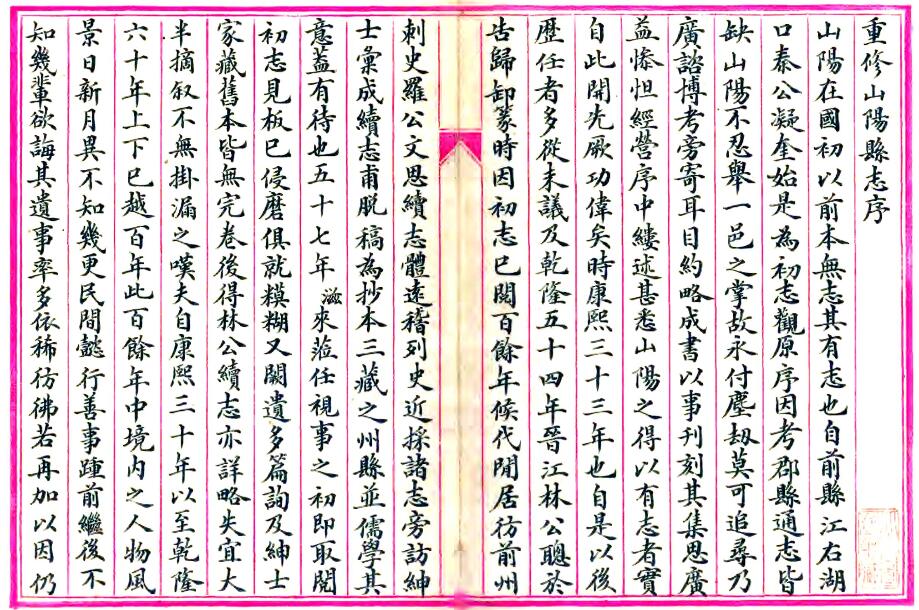 重修山陽縣志序
山陽在國初以前本無志其有志也自前縣江右湖
口秦公凝奎始是為初志觀原序因考郡縣通志皆
缺山陽不忍舉一邑之掌故永付塵劫莫可追尋乃
廣諮博考旁寄耳目約略成書以事刊刻其集思廣
益慘怛經營序中縷述甚悉山陽之得以有志者實
自此開先厥功偉矣時康熙三十三年也自是以後
歷任者多從未議及乾隆五十四年晉江林公聰於
告歸卸篆時因初志已閱百餘年候代閒居彷前州
刺史羅公文思續志體遠稽列史近採諸志旁訪紳
士彙成續志甫脫稿為抄本三藏之州縣並儒學其
意蓋有待也五十七年滋來蒞任視事之初即取閱
初志見板已侵磨俱就糢糊又闕遺多篇詢及紳士
家藏舊本皆無完卷後得林公續志亦詳略失宜大
半摘叙不無掛漏之嘆夫自康熙三十年以至乾隆
六十年上下已越百年此百餘年中境內之人物風
景日新月異不知幾更民間懿行善事踵前繼後不
知幾輩欲誨其遺事率多依稀彷彿若再加以因仍